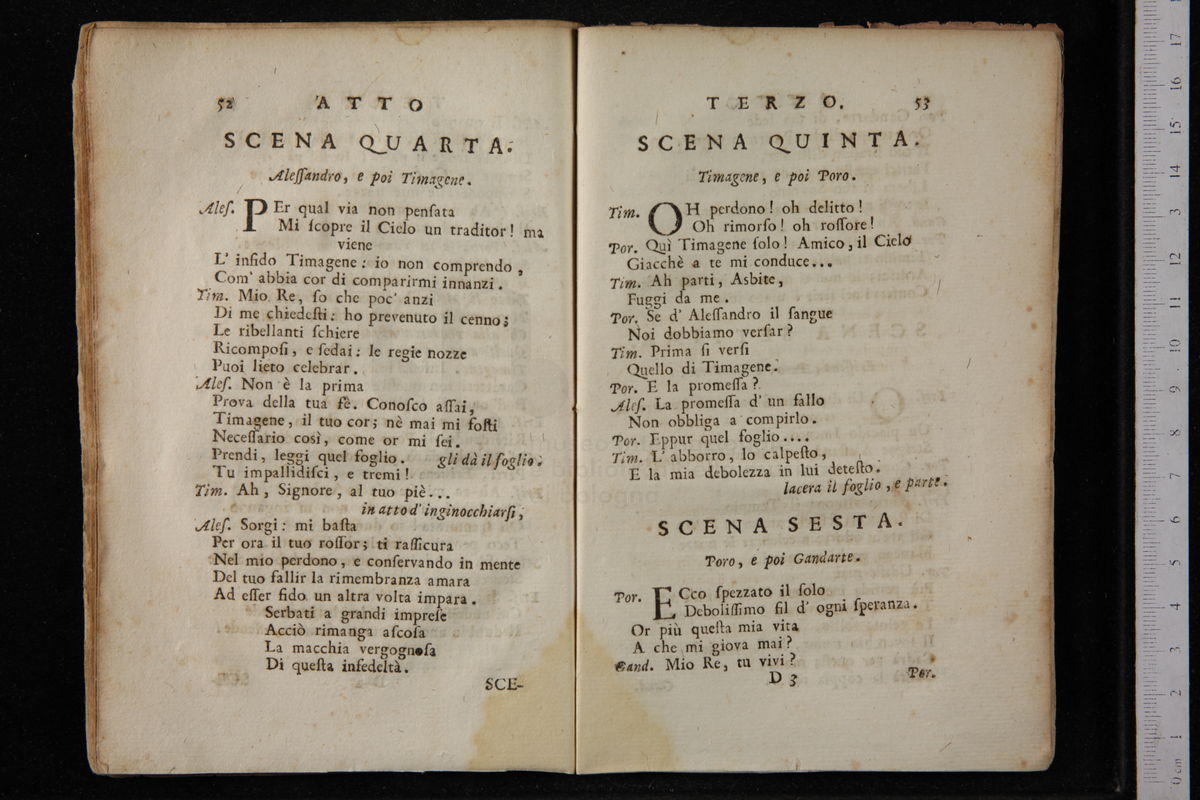 52 ATTO
SCENA QUARTA.
Aleſſandro, e poi Timagene.
Aleſ. PEr qual via non penſata
Mi ſcopre il Cielo un traditor! ma
viene
L' infido Timagene: io non comprendo,
Com' abbia cor di comparirmi innanzi.
Tim. Mio Re, ſo che poc' anzi
Di me chiedeſti: ho prevenuto il cenno;
Le ribellanti ſchiere
Ricompoſi, e ſedai: le regie nozze
Puoi lieto celebrar.
Aleſ. Non è la prima
Prova della tua fè. Conoſco aſſai,
Timagene, il tuo cor; nè mai mi foſti
Neceſſario così, come or mi ſei.
Prendi, leggi quel foglio. gli dà il foglio.
Tu impallidiſci, e tremi!
Tim. Ah, Signore, al tuo piè...
in atto d' inginocchiarſi,
Aleſ. Sorgi: mi baſta
Per ora il tuo roſſor; ti raſſicura
Nel mio perdono, e conſervando in mente
Del tuo fallir la rimembranza amara
Ad eſſer fido un altra volta impara.
Serbati a grandi impreſe
Acciò rimanga aſcoſa
La macchia vergognoſa
Di queſta infedeltà.
SCE-
TERZO. 53
SCENA QUINTA.
Timagene, e poi Poro.
Tim. OH perdono! oh delitto!
Oh rimorſo! oh roſſore!
Por. Quì Timagene ſolo! Amico, il Cielo
Giacchè a te mi conduce...
Tim. Ah parti, Asbite,
Fuggi da me.
Por. Se d' Aleſſandro il ſangue
Noi dobbiamo verſar?
Tim. Prima ſi verſi
Quello di Timagene.
Por. E la promeſſa?
Aleſ. La promeſſa d' un fallo
Non obbliga a compirlo.
Por. Eppur quel foglio....
Tim. L' abborro, lo calpeſto,
E la mia debolezza in lui deteſto.
lacera il foglio, e parte.
SCENA SESTA.
Poro, e poi Gandarte.
Por. ECco ſpezzato il ſolo
Deboliſſimo fil d' ogni ſperanza.
Or più queſta mia vita
A che mi giova mai?
Gand. Mio Re, tu vivi?
D 3 Por.